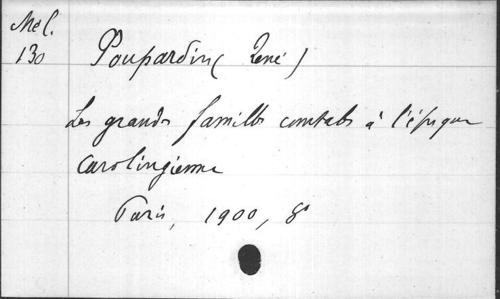 Mél.
130
Poupardin (René)
Les grandes familles comtales à l'époque
carolingienne
Paris, 1900, 8°